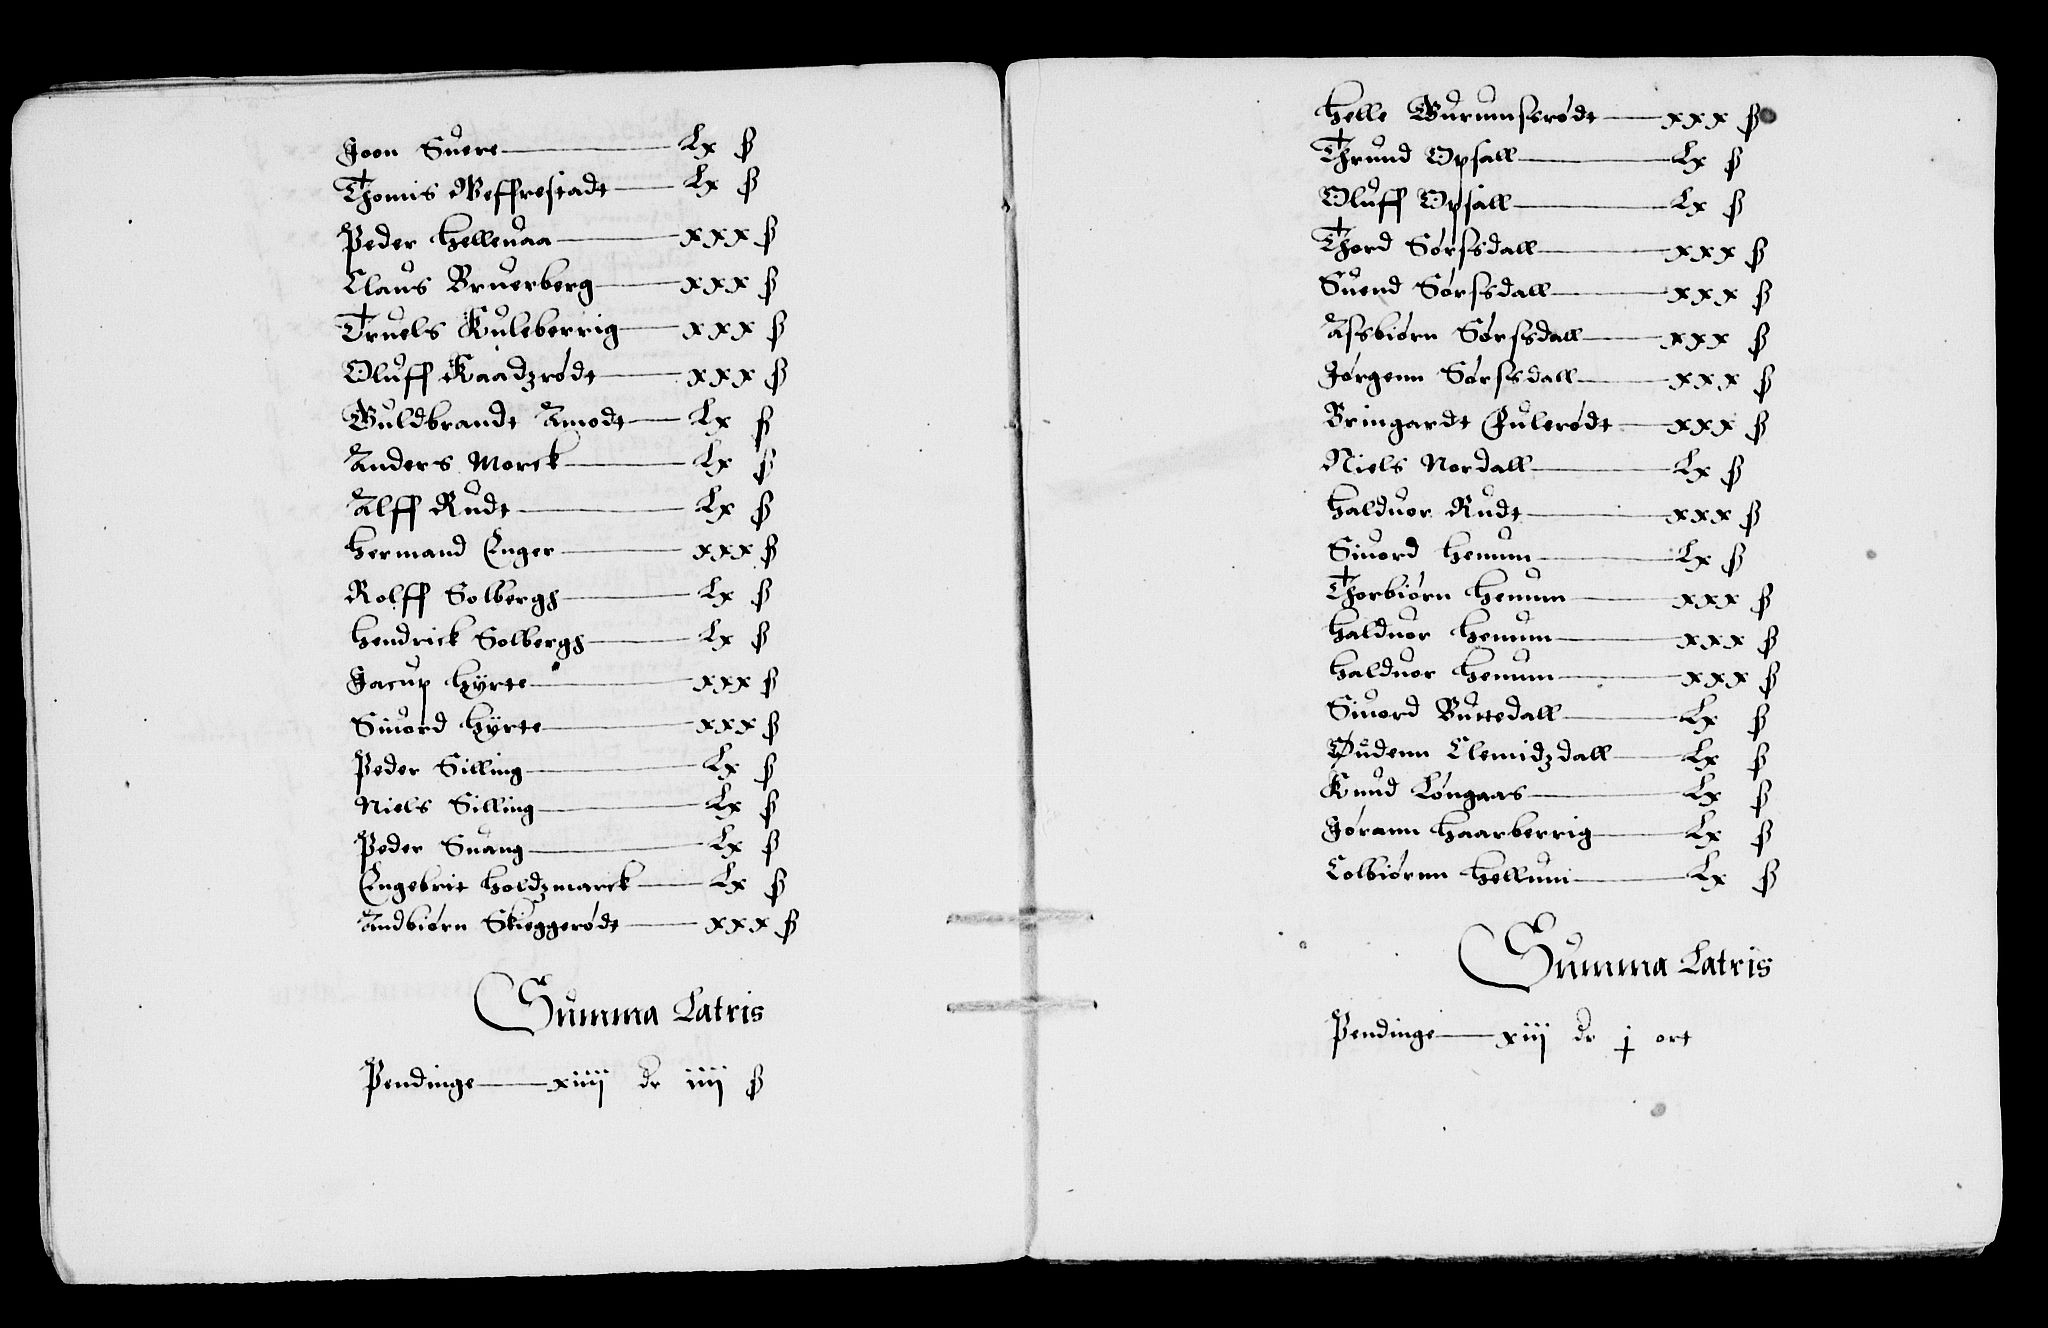 Joon Suere — Lx ß
Thomis Geffrestadt — Lx ß
Peder Helleuaa — xxx ß
Claus Bruerberg — xxx ß
Truels Kuleberrig — xxx ß
Oluff Kaadzrødt — xxx ß
Guldbrandt Amodt — Lx ß
Anders Morck — Lx ß
Alff Rudt — Lx ß
Hermand Enger — xxx ß
Rolff Solbergh — Lx ß
Hendrick Solbergh — Lx ß
Jacup Hÿrte — xxx ß
Siuord Hÿrte — xxx ß
Peder Silling — Lx ß
Niels Silling — Lx ß
Peder Suang — Lx ß
Engebrit Holdzmarck — Lx ß
Andbiørn Skieggerødt — xxx ß
Summa Latris
Pendinge — xiiij dr iiij ß
Helle Gurumsrødt — xxx ß
Thrund Opsall — Lx ß
Oluff Opsall — Lx ß
Thord Sørssdall — xxx ß
Suend Sørssdall — xxx ß
Assbiørn Sørssdall — xxx ß
Jørgenn Sørssdall — xxx ß
Bringardt Fulerødt — xxx ß
Niels Nordall — Lx ß
Halduor Rudt — xxx ß
Siuord Hemum — Lx ß
Thorbiørn Hemum — xxx ß
Halduor Hemum — xxx ß
Halduor Hemum — xxx ß
Siuord Buttedall — Lx ß
Oudenn Clemidzdall — Lx ß
Knud Løngaas — Lx ß
Jørann Haarberrig — Lx ß
Colbiørnn Hellum — Lx ß
Summa Latris
Pendinge — xiij dr j ort